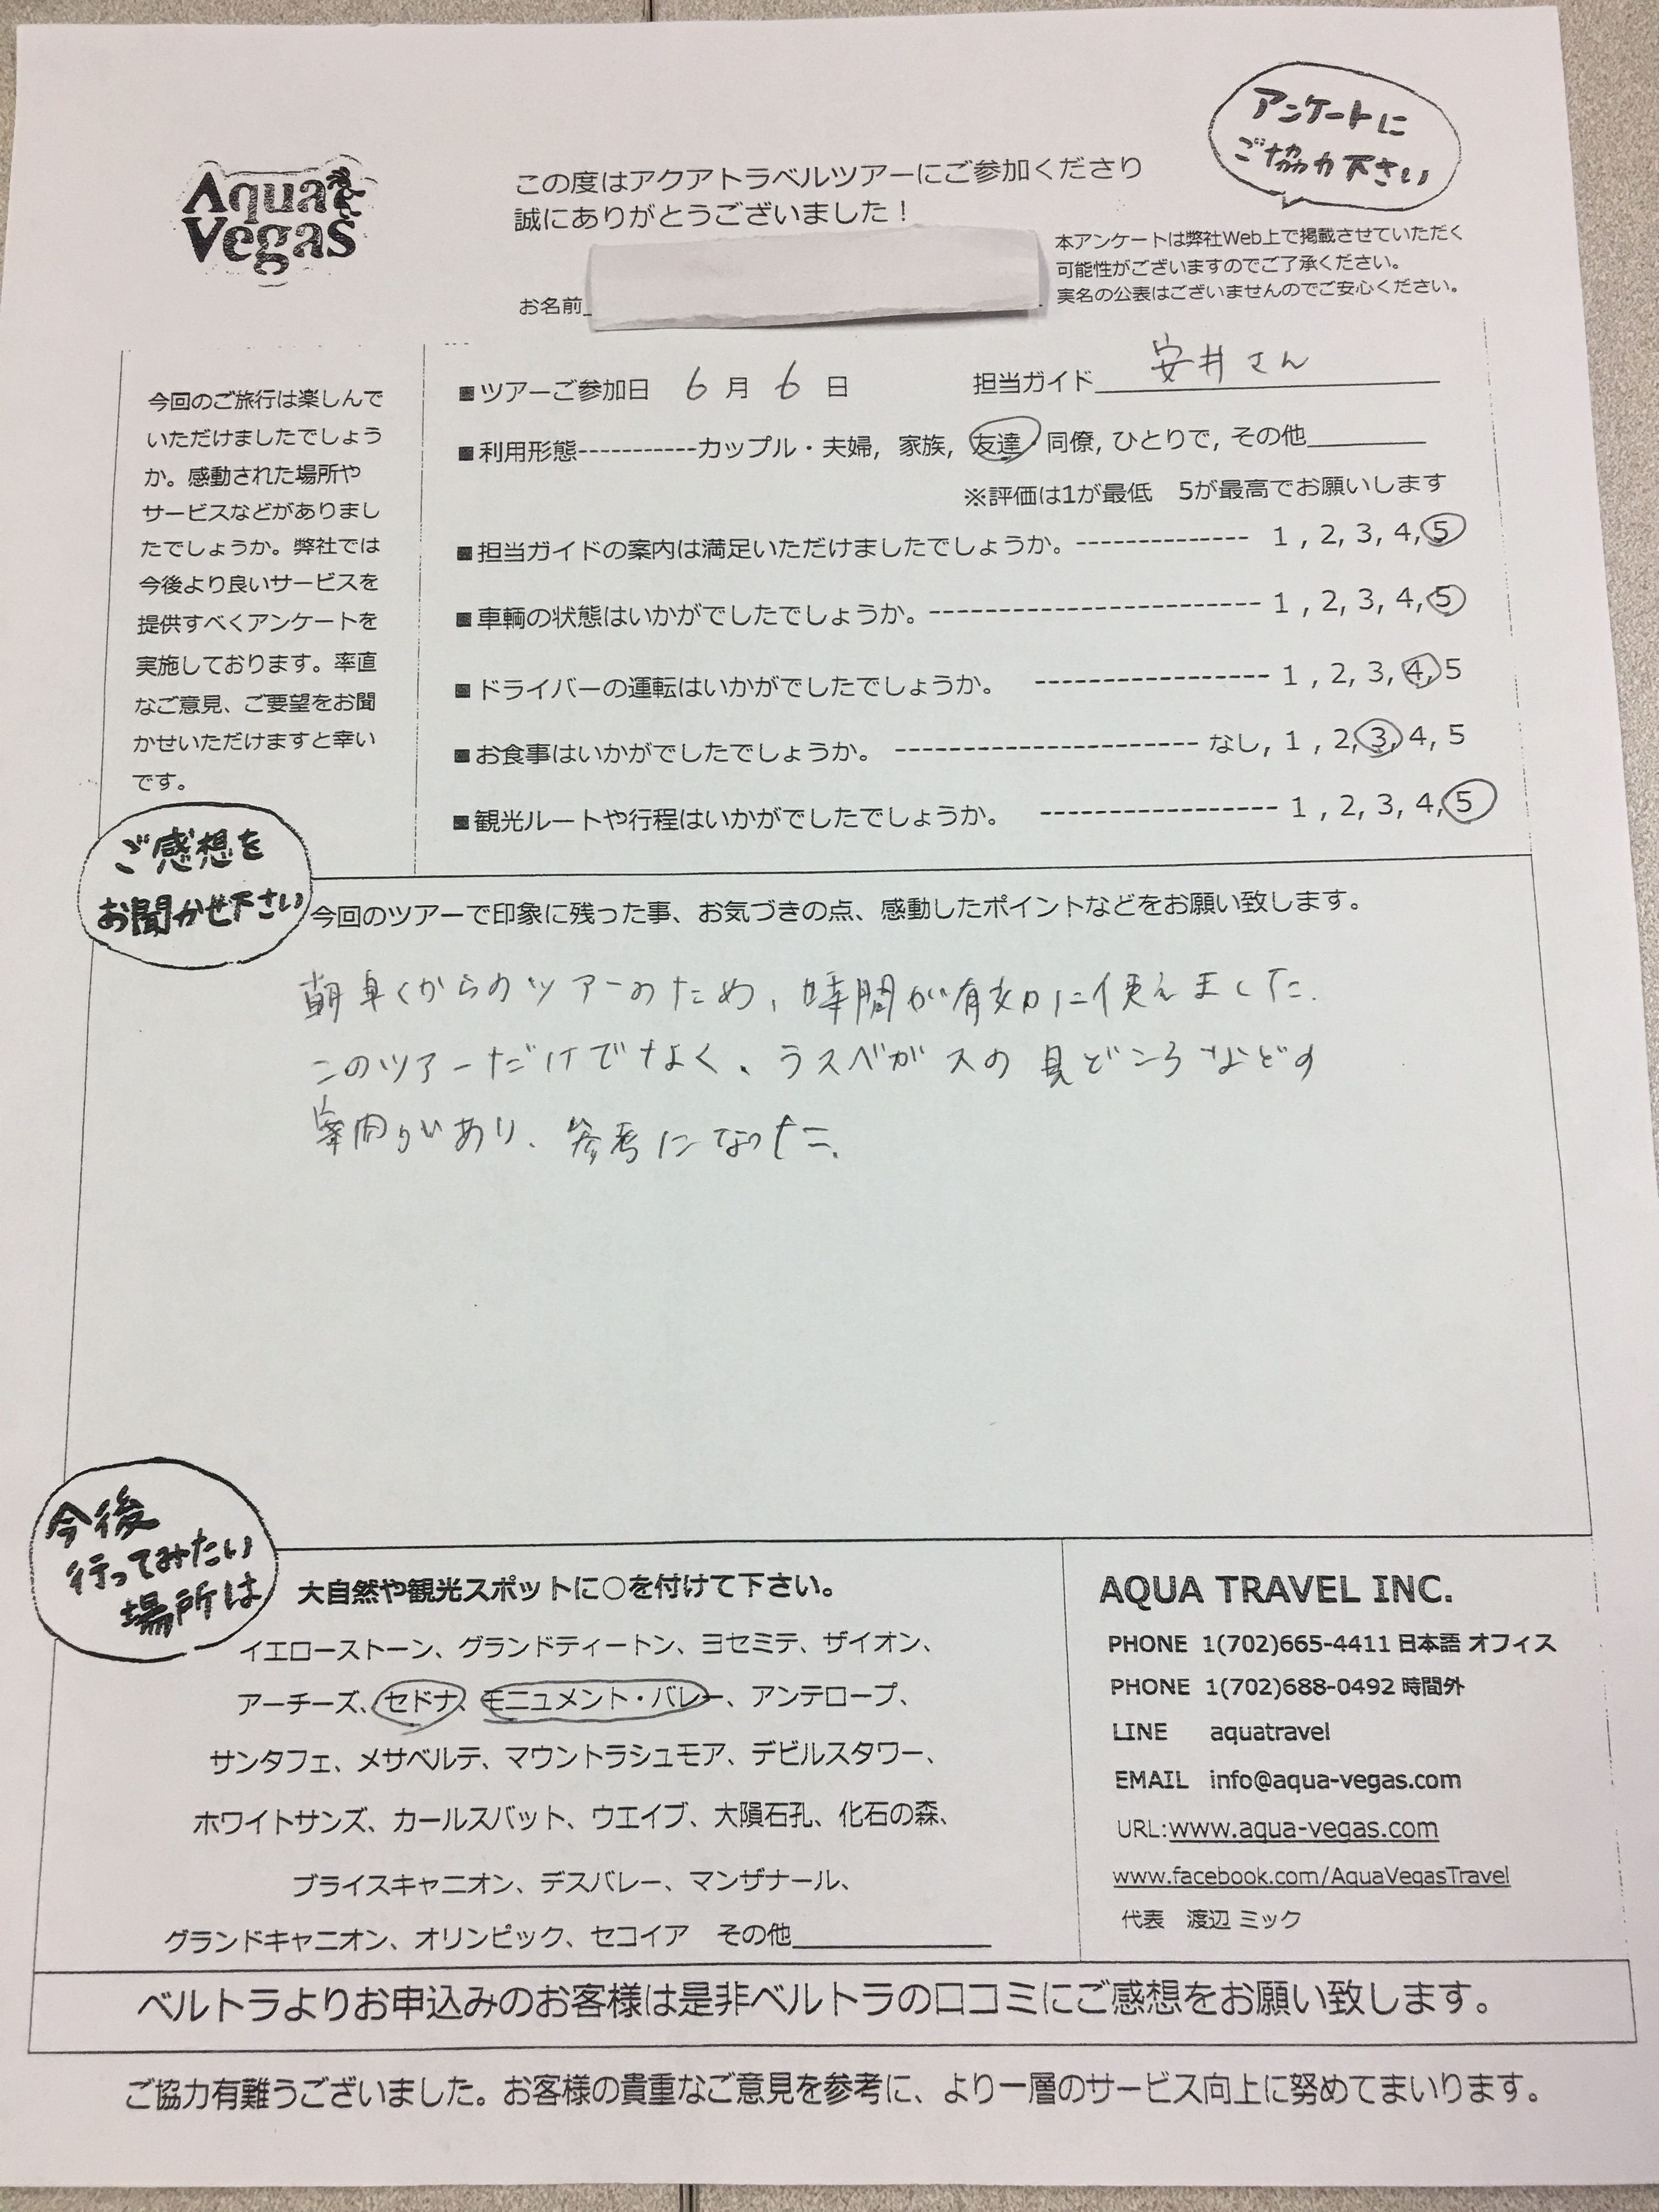 Aqua
Vegas
この度はアクアトラベルツアーにご参加くださり
誠にありがとうございました！
アンケートに
ご協力下さい
本アンケートは弊社Web上で掲載させていただく
可能性がございますのでご了承ください。
実名の公表はございませんのでご安心ください。
お名前
今回のご旅行は楽しんで
いただけましたでしょう
か。感動された場所や
サービスなどがありまし
たでしょうか。弊社では
今後より良いサービスを
提供すべくアンケートを
実施しております。率直
なご意見、ご要望をお聞
かせいただけますと幸い
です。
■ツアーご参加日 6月 6日 担当ガイド 安井さん
■利用形態-----------カップル・夫婦, 家族, 友達・同僚, ひとりで, その他
※評価は1が最低 5が最高でお願いします
■担当ガイドの案内は満足いただけましたでしょうか。-------------- 1 , 2, 3, 4, 5
■車輌の状態はいかがでしたでしょうか。------------------------- 1 , 2, 3, 4, 5
■ドライバーの運転はいかがでしたでしょうか。 ----------------- 1 , 2, 3, 4, 5
■お食事はいかがでしたでしょうか。 ---------------------- なし, 1 , 2, 3, 4, 5
■観光ルートや行程はいかがでしたでしょうか。 ----------------- 1 , 2, 3, 4, 5
ご感想を
お聞かせ下さい
今回のツアーで印象に残った事、お気づきの点、感動したポイントなどをお願い致します。
朝早くからのツアーのため、時間が有効に使えました.
このツアーだけでなく、ラスベガスの見どころなどの
案内があり、参考になった.
今後
行ってみたい
場所は
大自然や観光スポットに○を付けて下さい。
イエローストーン、グランドティートン、ヨセミテ、ザイオン、
アーチーズ、セドナ、モニュメント・バレー、アンテロープ、
サンタフェ、メサベルテ、マウントラシュモア、デビルスタワー、
ホワイトサンズ、カールスバット、ウエイブ、大隕石孔、化石の森、
ブライスキャニオン、デスバレー、マンザナール、
グランドキャニオン、オリンピック、セコイア その他
AQUA TRAVEL INC.
PHONE 1(702)665-4411 日本語 オフィス
PHONE 1(702)688-0492 時間外
LINE aquatravel
EMAIL info@aqua-vegas.com
URL:www.aqua-vegas.com
www.facebook.com/AquaVegasTravel
代表 渡辺 ミック
ベルトラよりお申込みのお客様は是非ベルトラの口コミにご感想をお願い致します。
ご協力有難うございました。お客様の貴重なご意見を参考に、より一層のサービス向上に努めてまいります。